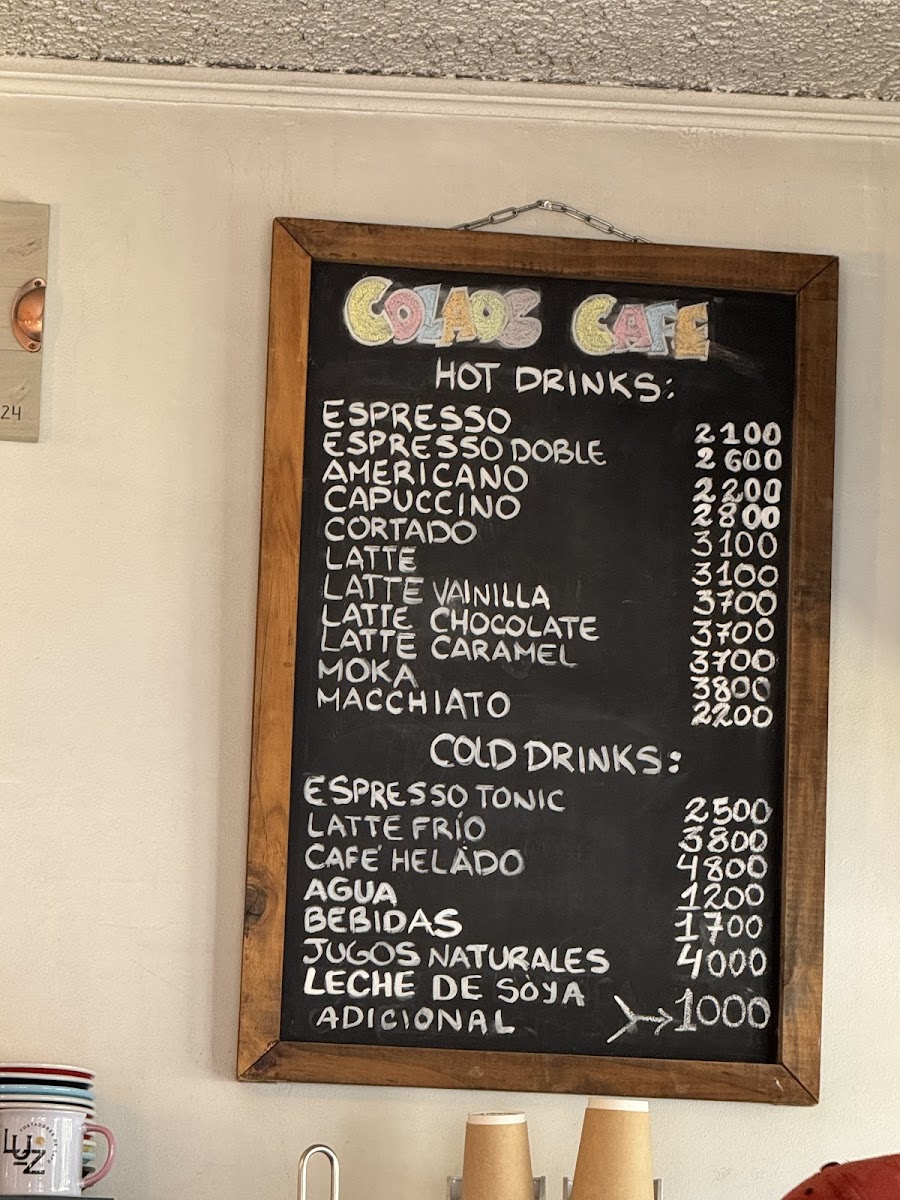 COLAOS CAFE
HOT DRINKS:
ESPRESSO 2100
ESPRESSO DOBLE 2600
AMERICANO 2200
CAPUCCINO 2800
CORTADO 3100
LATTE 3100
LATTE VAINILLA 3700
LATTE CHOCOLATE 3700
LATTE CARAMEL 3700
MOKA 3800
MACCHIATO 2200
COLD DRINKS:
ESPRESSO TONIC 2500
LATTE FRÍO 3800
CAFÉ HELADO 4800
AGUA 1200
BEBIDAS 1700
JUGOS NATURALES 4000
LECHE DE SÒYA
ADICIONAL 1000
24
LUZ